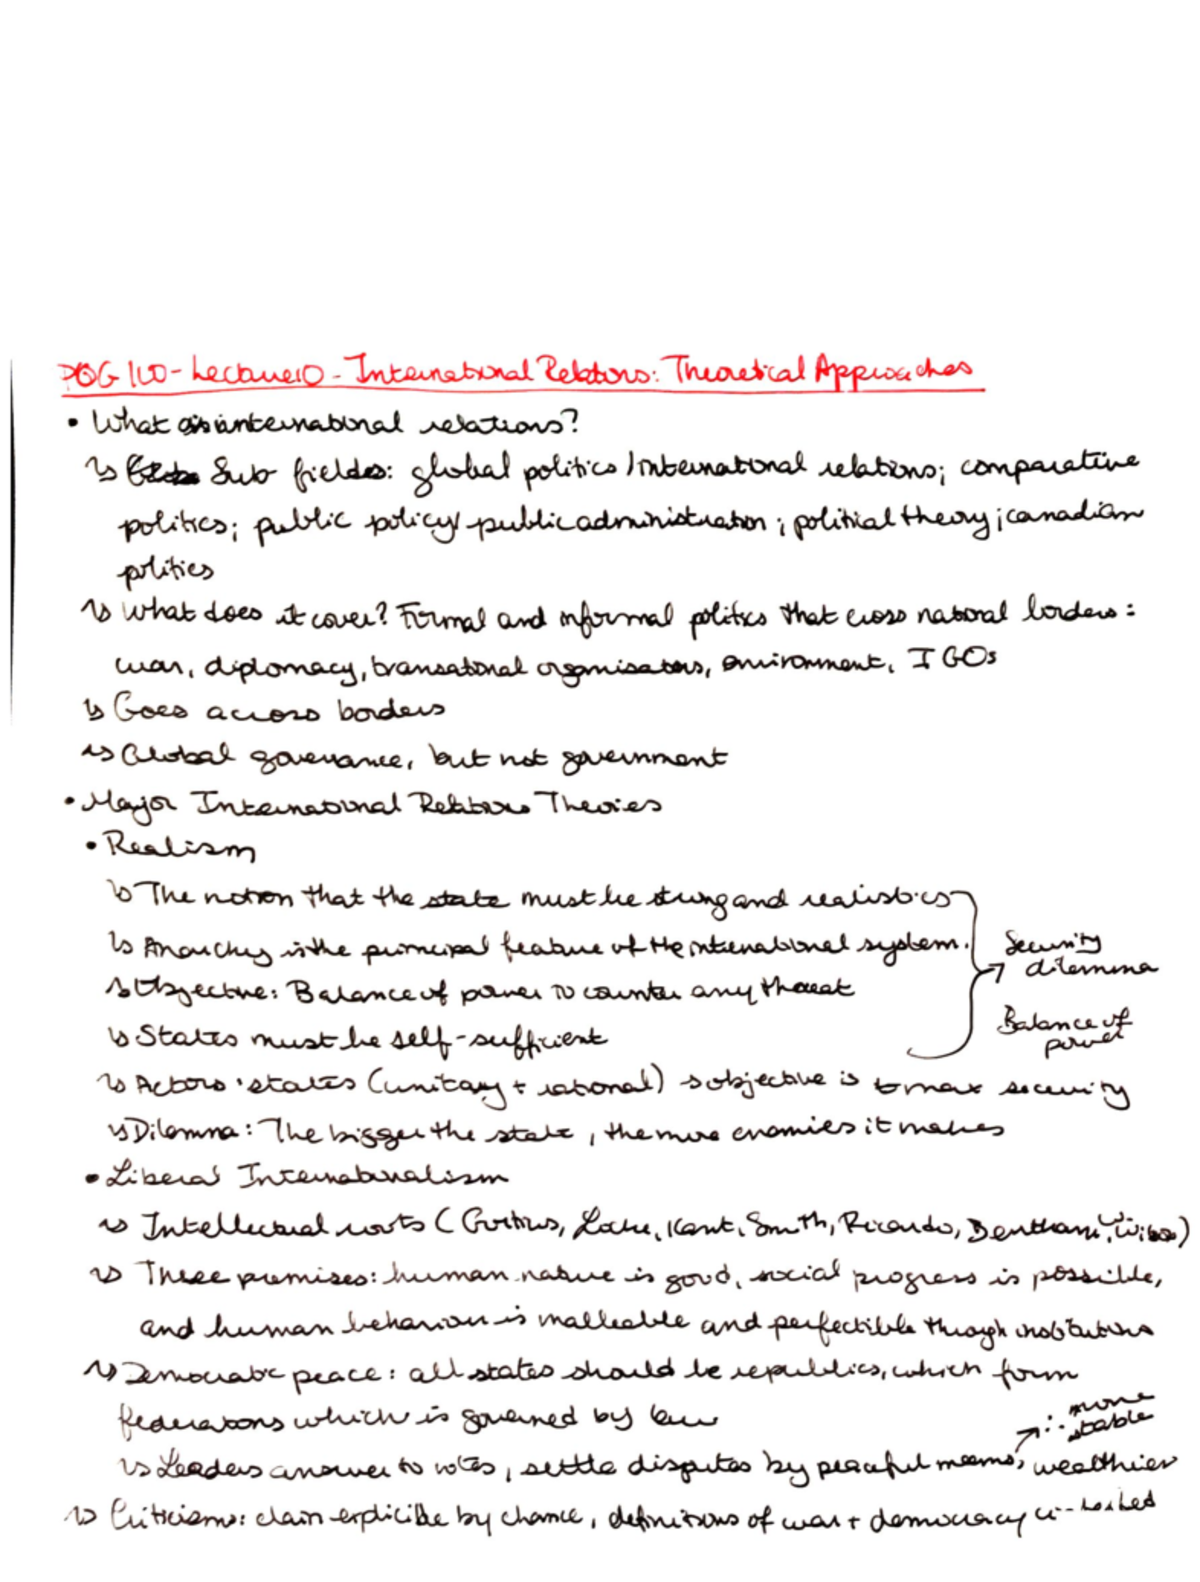 POG 100 - Lecture 10 - International Relations: Theoretical Approaches
• What is international relations?
↳ Sub fields: global politics / international relations; comparative
politics; public policy/ public administration; political theory; canadian
politics
↳ What does it cover? Formal and informal politics that cross national borders:
war, diplomacy, transnational organisations, environment, IGOs
↳ Goes across borders
↳ Global governance, but not government
• Major International Relations Theories
• Realism
↳ The notion that the state must be strong and realistics
↳ Anarchy is the principal feature of the international system.
Security
dilemma
↳ Objective: Balance of power to counter any threat
Balance of
power
↳ States must be self-sufficient
↳ Actors: states (unitary + rational) objective is to max security
↳ Dilemma: The bigger the state, the more enemies it makes
• Liberal Internationalism
↳ Intellectual roots (Grotius, Locke, Kant, Smith, Ricardo, Bentham,
↳ Three premises: human nature is good, social progress is possible,
and human behaviour is malleable and perfectible through institutions
↳ Democratic peace: all states should be republics, which form
federations which is governed by law
∴ more
stable
↳ Leaders answer to votes, settle disputes by peaceful means, wealthier
↳ Criticisms: claim explicible by chance, definitions of war + democracy